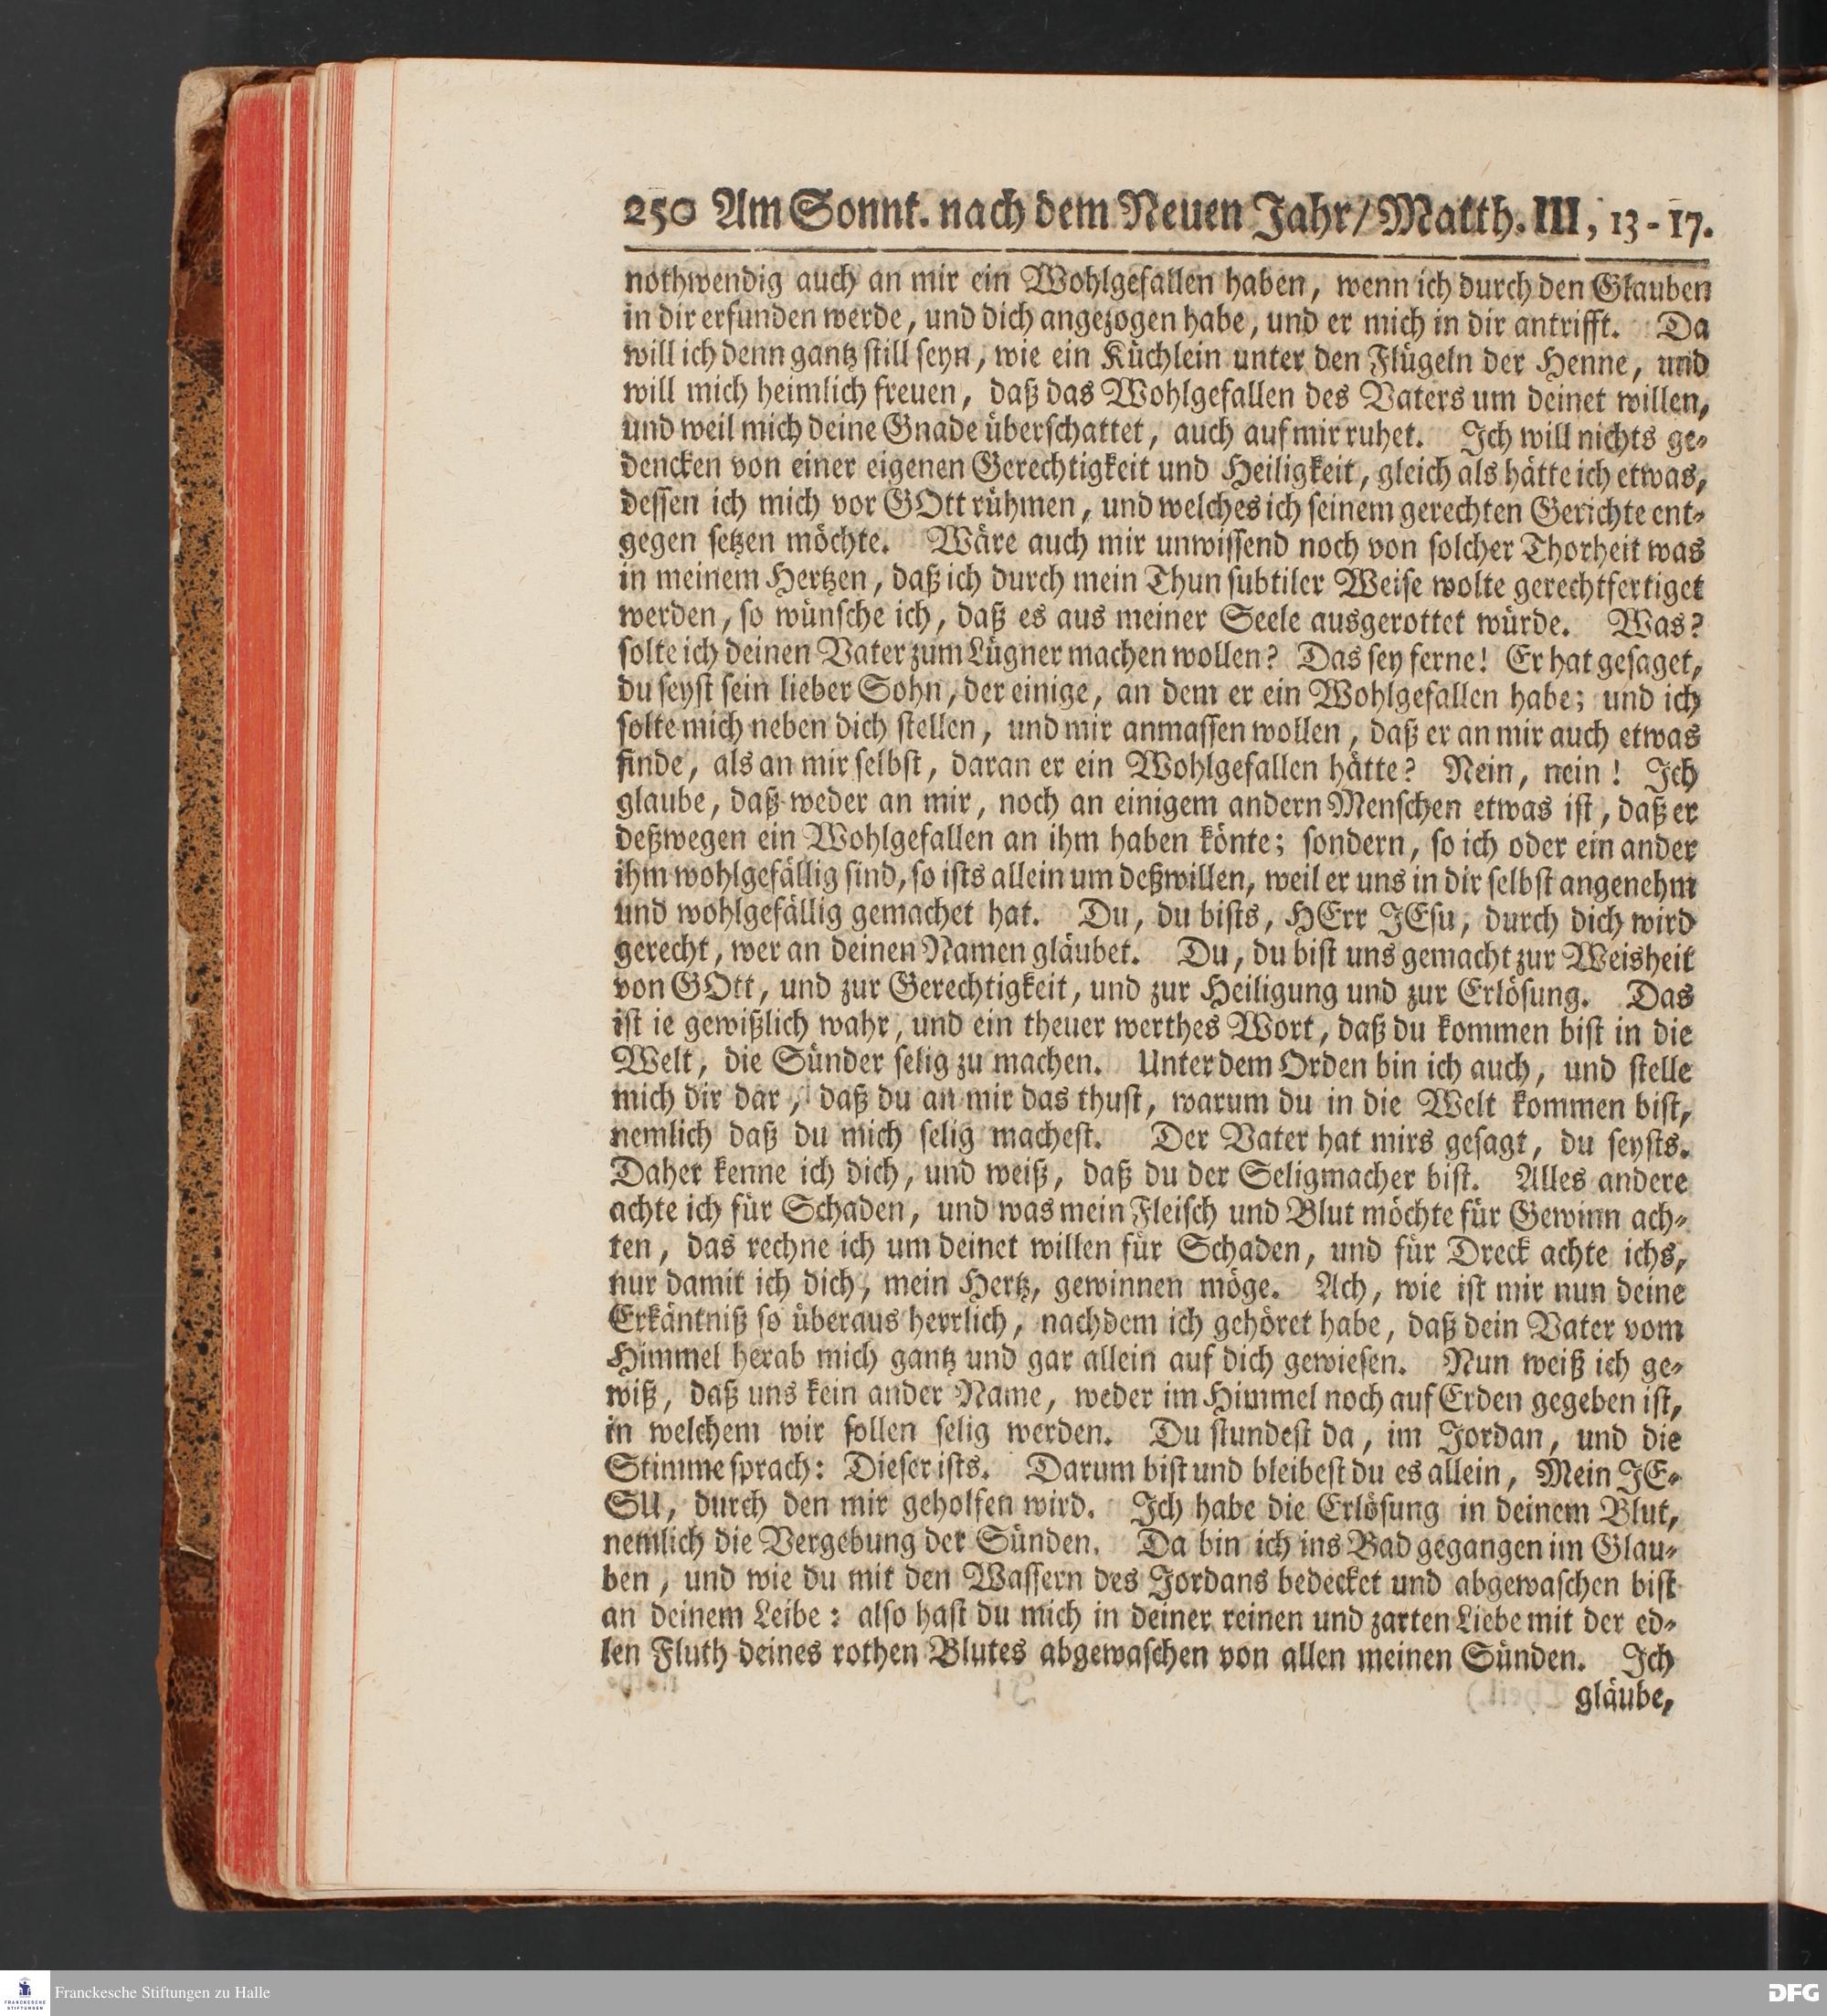 250 Am Sonnt. nach dem Neuen Jahr/ Matth. III, 13-17.
nothwendig auch an mir ein Wohlgefallen haben, wenn ich durch den Glauben
in dir erfunden werde, und dich angezogen habe, und er mich in dir antrifft. Da
will ich denn gantz still seyn, wie ein Küchlein unter den Flügeln der Henne, und
will mich heimlich freuen, daß das Wohlgefallen des Vaters um deinet willen,
und weil mich deine Gnade überschattet, auch auf mir ruhet. Ich will nichts ge-
dencken von einer eigenen Gerechtigkeit und Heiligkeit, gleich als hätte ich etwas,
dessen ich mich vor GOtt rühmen, und welches ich seinem gerechten Gerichte ent-
gegen setzen möchte. Wäre auch mir unwissend noch von solcher Thorheit was
in meinem Hertzen, daß ich durch mein Thun subtiler Weise wolte gerechtfertiget
werden, so wünsche ich, daß es aus meiner Seele ausgerottet würde. Was?
solte ich deinen Vater zum Lügner machen wollen? Das sey ferne! Er hat gesaget,
du seyst sein lieber Sohn, der einige, an dem er ein Wohlgefallen habe; und ich
solte mich neben dich stellen, und mir anmassen wollen, daß er an mir auch etwas
finde, als an mir selbst, daran er ein Wohlgefallen hätte? Nein, nein! Ich
glaube, daß weder an mir, noch an einigem andern Menschen etwas ist, daß er
deßwegen ein Wohlgefallen an ihm haben könte; sondern, so ich oder ein ander
ihm wohlgefällig sind, so ists allein um deßwillen, weil er uns in dir selbst angenehm
und wohlgefällig gemachet hat. Du, du bists, HErr JEsu, durch dich wird
gerecht, wer an deinen Namen gläubet. Du, du bist uns gemacht zur Weisheit
von GOtt, und zur Gerechtigkeit, und zur Heiligung und zur Erlösung. Das
ist ie gewißlich wahr, und ein theuer werthes Wort, daß du kommen bist in die
Welt, die Sünder selig zu machen. Unter dem Orden bin ich auch, und stelle
mich dir dar, daß du an mir das thust, warum du in die Welt kommen bist,
nemlich daß du mich selig machest. Der Vater hat mirs gesagt, du seysts.
Daher kenne ich dich, und weiß, daß du der Seligmacher bist. Alles andere
achte ich für Schaden, und was mein Fleisch und Blut möchte für Gewinn ach-
ten, das rechne ich um deinet willen für Schaden, und für Dreck achte ichs,
nur damit ich dich, mein Hertz, gewinnen möge. Ach, wie ist mir nun deine
Erkäntniß so überaus herrlich, nachdem ich gehöret habe, daß dein Vater vom
Himmel herab mich gantz und gar allein auf dich gewiesen. Nun weiß ich ge-
wiß, daß uns kein ander Name, weder im Himmel noch auf Erden gegeben ist,
in welchem wir sollen selig werden. Du stundest da, im Jordan, und die
Stimme sprach: Dieser ists. Darum bist und bleibest du es allein, Mein JE-
SU, durch den mir geholfen wird. Ich habe die Erlösung in deinem Blut,
nemlich die Vergebung der Sünden. Da bin ich ins Bad gegangen im Glau-
ben, und wie du mit den Wassern des Jordans bedecket und abgewaschen bist
an deinem Leibe: also hast du mich in deiner reinen und zarten Liebe mit der ed-
len Fluth deines rothen Blutes abgewaschen von allen meinen Sünden. Ich
gläube,
FRANCKESCHE STIFTUNGEN
Franckesche Stiftungen zu Halle
DFG